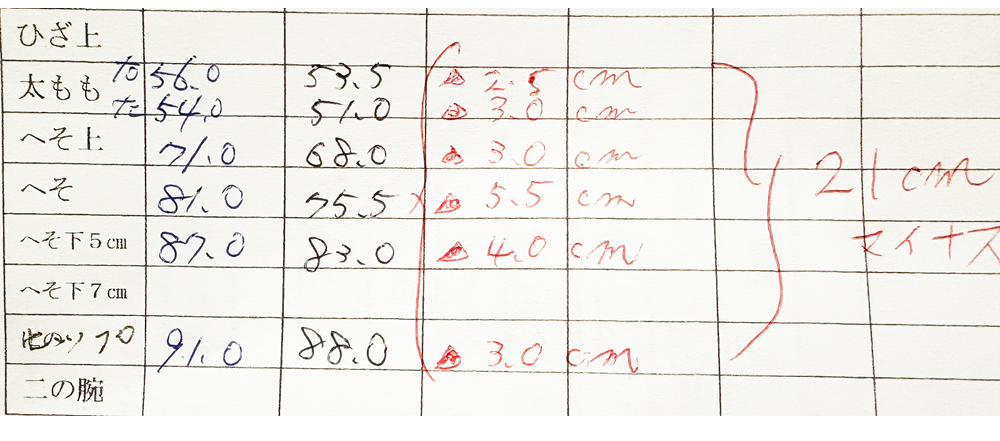 ひざ上
太もも 右 56.0 53.5 △ 2.5 cm
左 54.0 51.0 △ 3.0 cm
へそ上 71.0 68.0 △ 3.0 cm
へそ 81.0 75.5 △ 5.5 cm
21cm
マイナス
へそ下5cm 87.0 83.0 △ 4.0 cm
へそ下7cm
91.0 88.0 △ 3.0 cm
二の腕